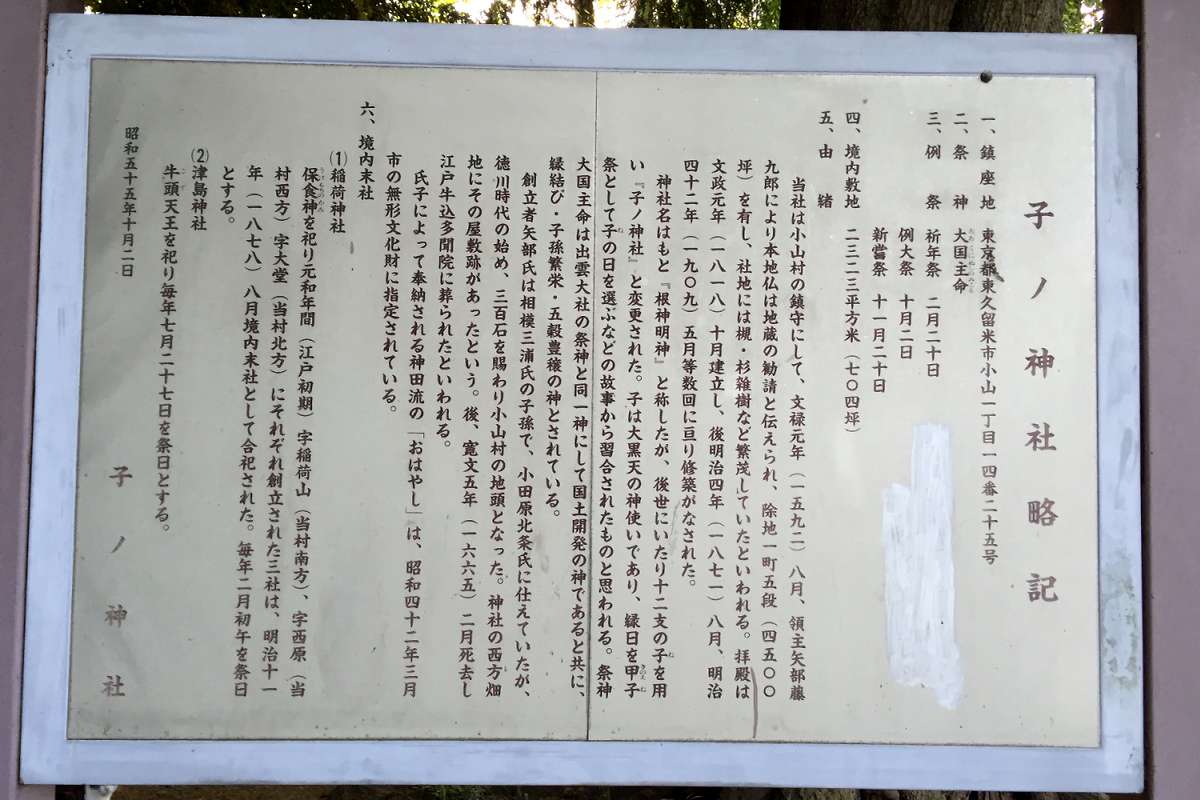 子ノ神社略記
一、鎮座地 東京都東久留米市小山一丁目一四番二十五号
二、祭神 大国主命
三、例祭 祈年祭 二月二十日
例大祭 十月二日
新嘗祭 十一月二十日
四、境内敷地 二三二三平方米(七〇四坪)
五、由緒
当社は小山村の鎮守にして、文禄元年(一五九二)八月、領主矢部藤
九郎により本地仏は地蔵の勧請と伝えられ、除地一町五段(四五〇〇
坪)を有し、社地には槻・杉雑樹など繁茂していたといわれる。拝殿は
文政元年(一八一八)十月建立し、後明治四年(一八七一)八月、明治
四十二年(一九〇九)五月等数回に亘り修築がなされた。
神社名はもと『根神明神』と称したが、後世にいたり十二支の子を用
い『子ノ神社』と変更された。子は大黒天の神使いであり、縁日を甲子
祭として子の日を選ぶなどの故事から習合されたものと思われる。祭神
大国主命は出雲大社の祭神と同一神にして国土開発の神であると共に、
縁結び・子孫繁栄・五穀豊穣の神とされている。
創立者矢部氏は相模三浦氏の子孫で、小田原北条氏に仕えていたが、
徳川時代の始め、三百石を賜わり小山村の地頭となった。神社の西方畑
地にその屋敷跡があったという。後、寛文五年(一六六五)二月死去し
江戸牛込多聞院に葬られたといわれる。
氏子によって奉納される神田流の「おはやし」は、昭和四十二年三月
市の無形文化財に指定されている。
六、境内末社
(1)稲荷神社
保食神を祀り元和年間(江戸初期)字稲荷山(当村南方)、字西原(当
村西方)字大堂(当村北方)にそれぞれ創立された三社は、明治十一
年(一八七八)八月境内末社として合祀された。毎年二月初午を祭日
とする。
(2)津島神社
牛頭天王を祀り毎年七月二十七日を祭日とする。
昭和五十五年十月二日
子ノ神社